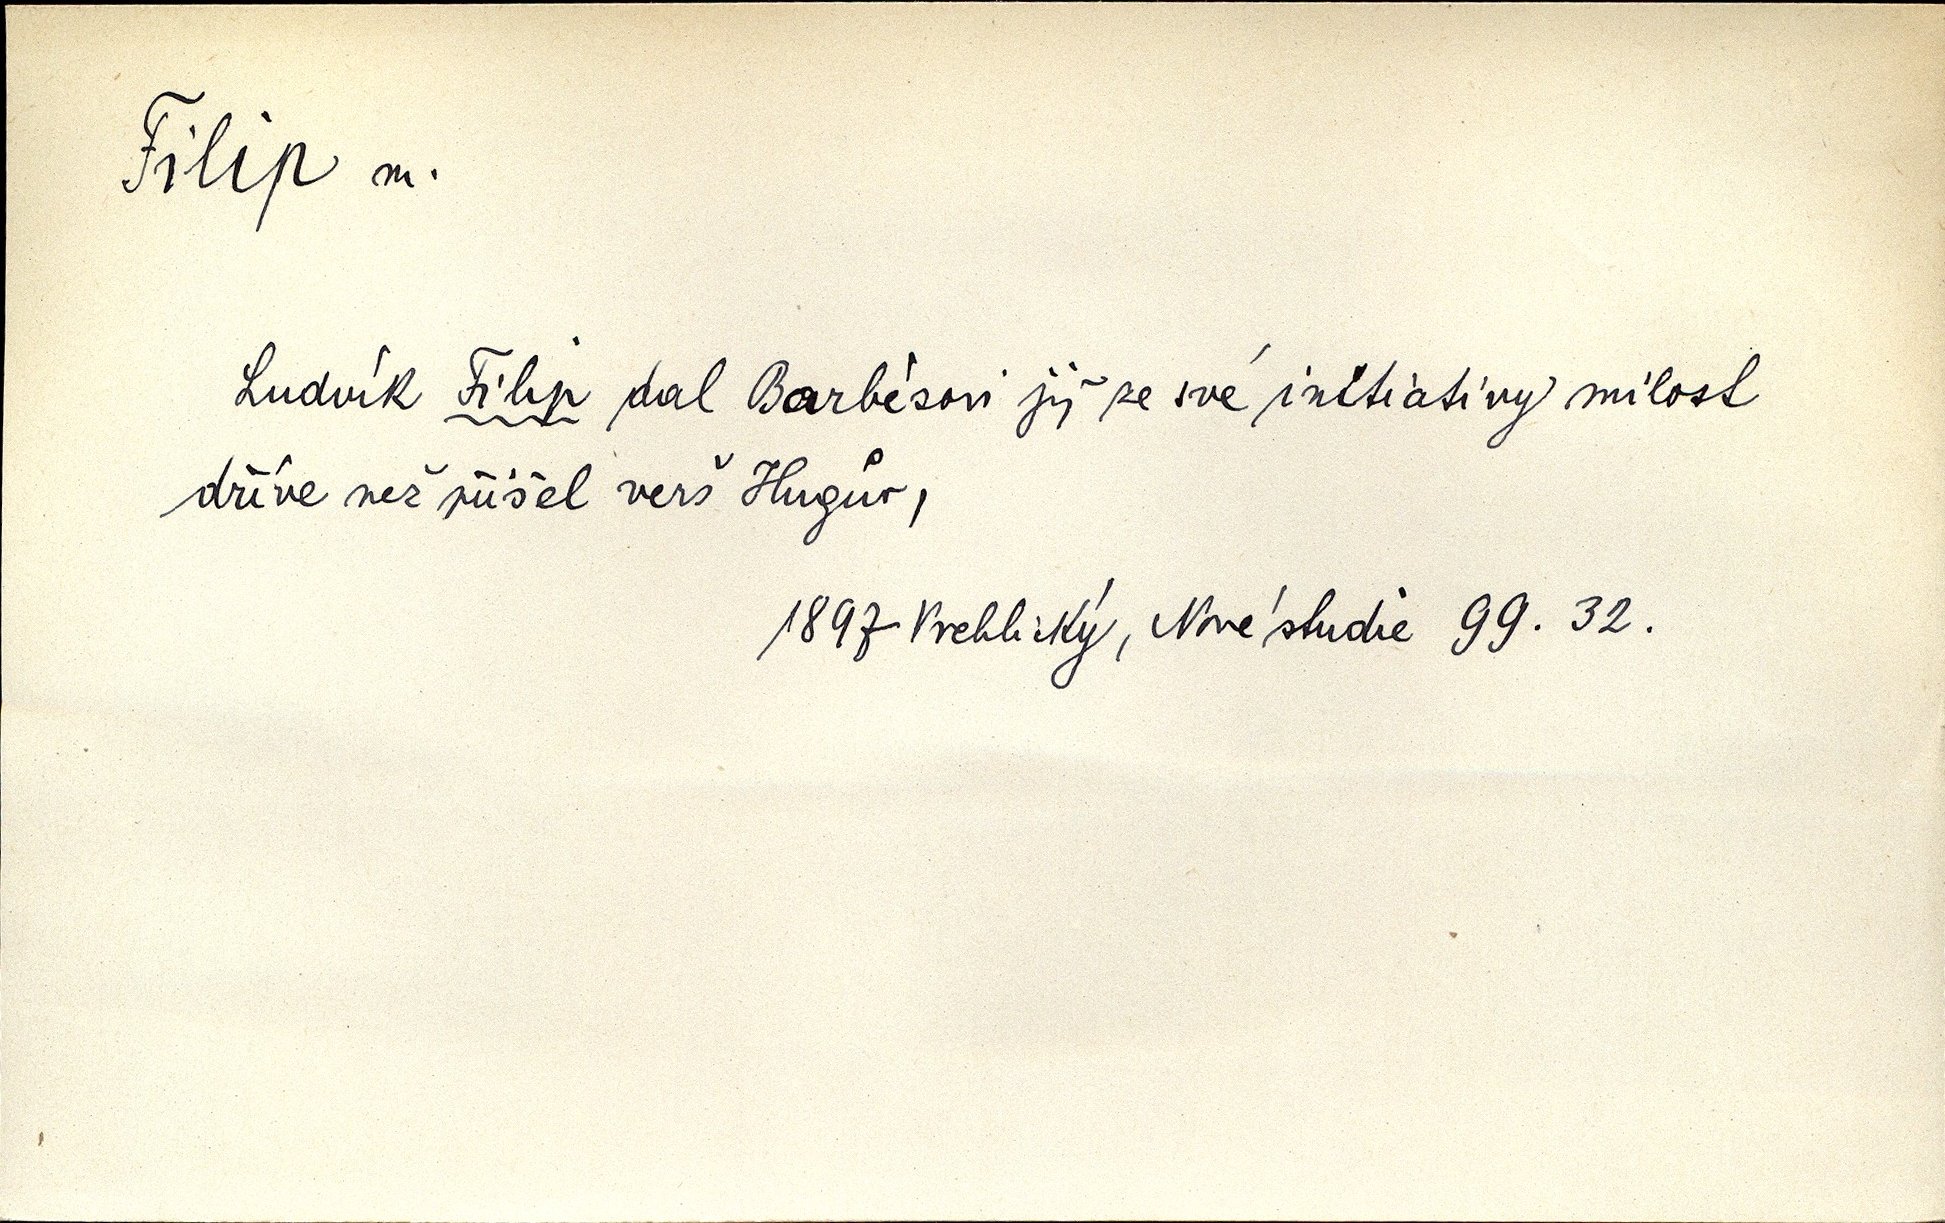 Filip m.
Ludvík Filip dal Barbèsovi již ze své initiativy milost
dříve než přišel verš Hugův,
1897 Vrchlický, Nové studie 99. 32.